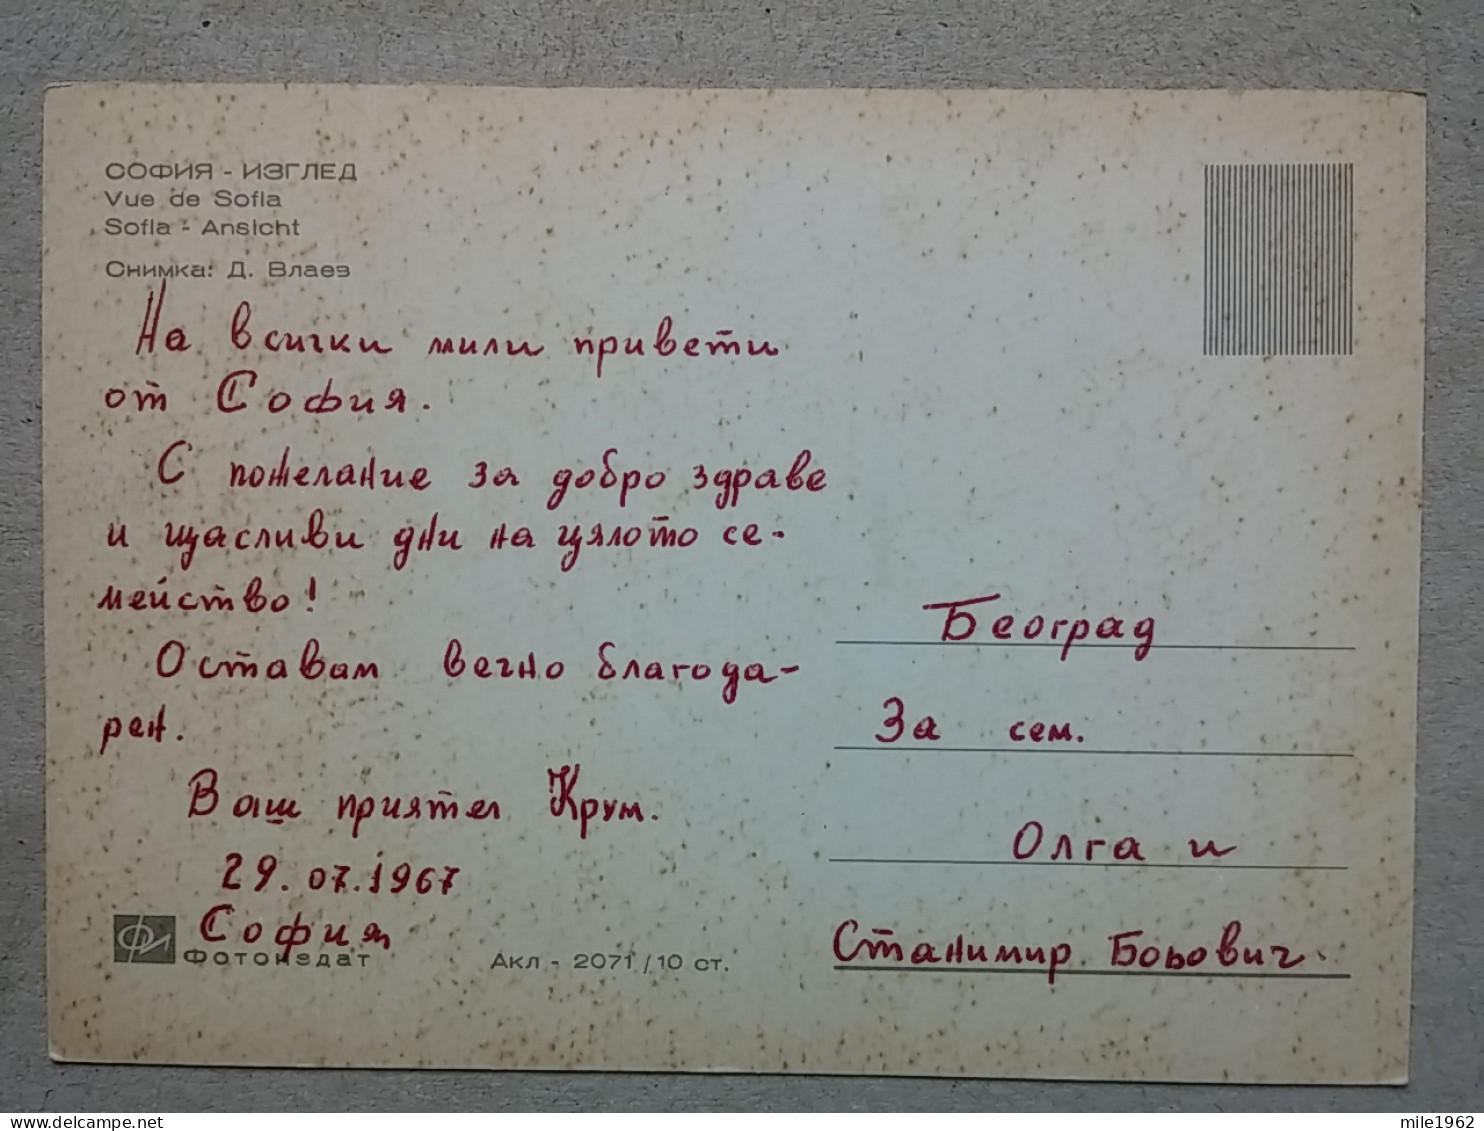 СОФИЯ - ИЗГЛЕД
Vue de Sofia
Sofia - Ansicht
Снимка: Д. Влаев
На всички мили привети
от София.
С пожелание за добро здраве
и щасливи дни на цялото се-
мейство!
Оставам вечно благода-
рен.
Ваш приятел Крум.
29.07.1967
София
Фотоиздат
Акл - 2071/10 ст.
Београд
За сем.
Олга и
Станимир Боьович.
mile1962